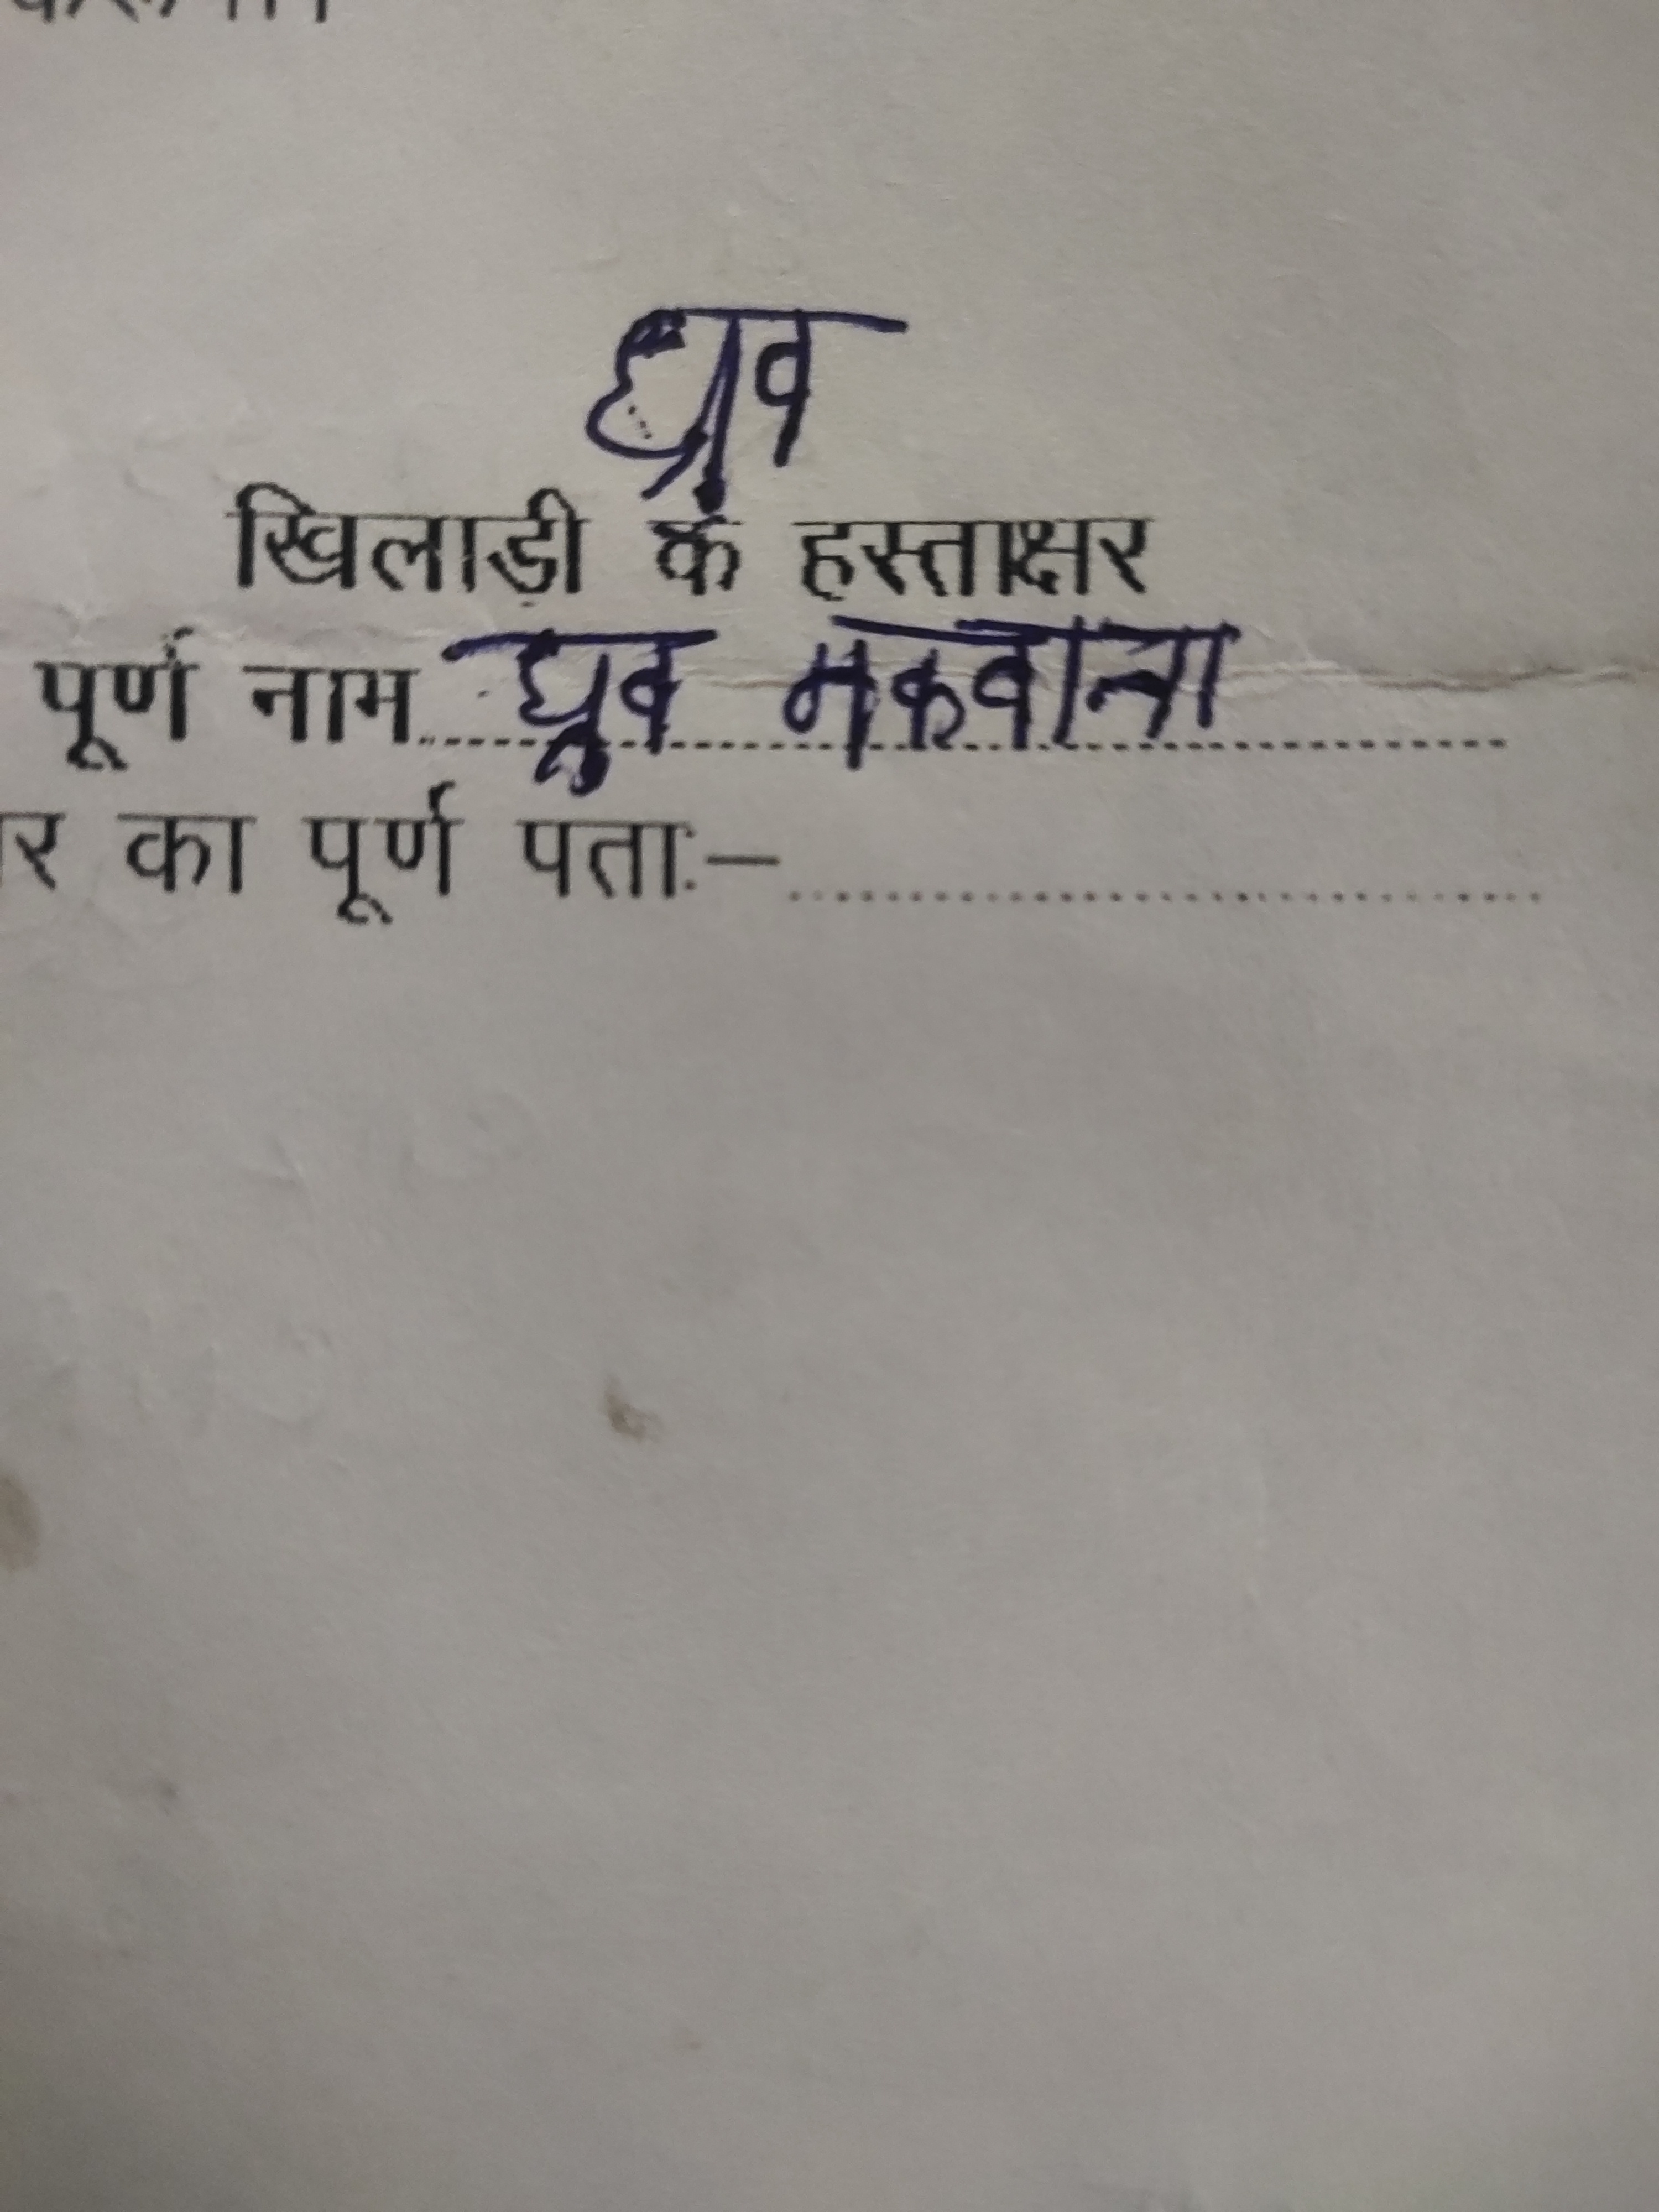 ध्रुव
खिलाड़ी के हस्ताक्षर
पूर्ण नाम ध्रुव मकवाना
का पूर्ण पताः–